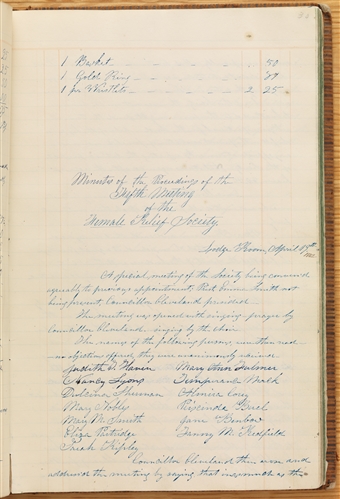 1 Basket . 50
1 Gold Ring .
1 pr Wristlets 2. 25
Minutes of the Proceedings of the
Meeting
of the
Female Relief Society.
Lodge Room, April
A special meeting of the Society being convened
agreeably to previous appointment, Prest. Emma Smith not
being present, Councillor Cleveland presided.
The meeting was opened with singing— prayer by
Councillor Cleveland— singing by the choir.
The names of the following persons, were then read—
no objections offered, they were unanimously received.
Mary Ann Fulmer
Nancy Lyons
Sherman
Mary Nobles
Mary M. Smith
Eliza Partridge
Fanny M. Redfield
Sarah
Councillor Cleveland then arose and
addressed the meeting by saying that inasmuch as the